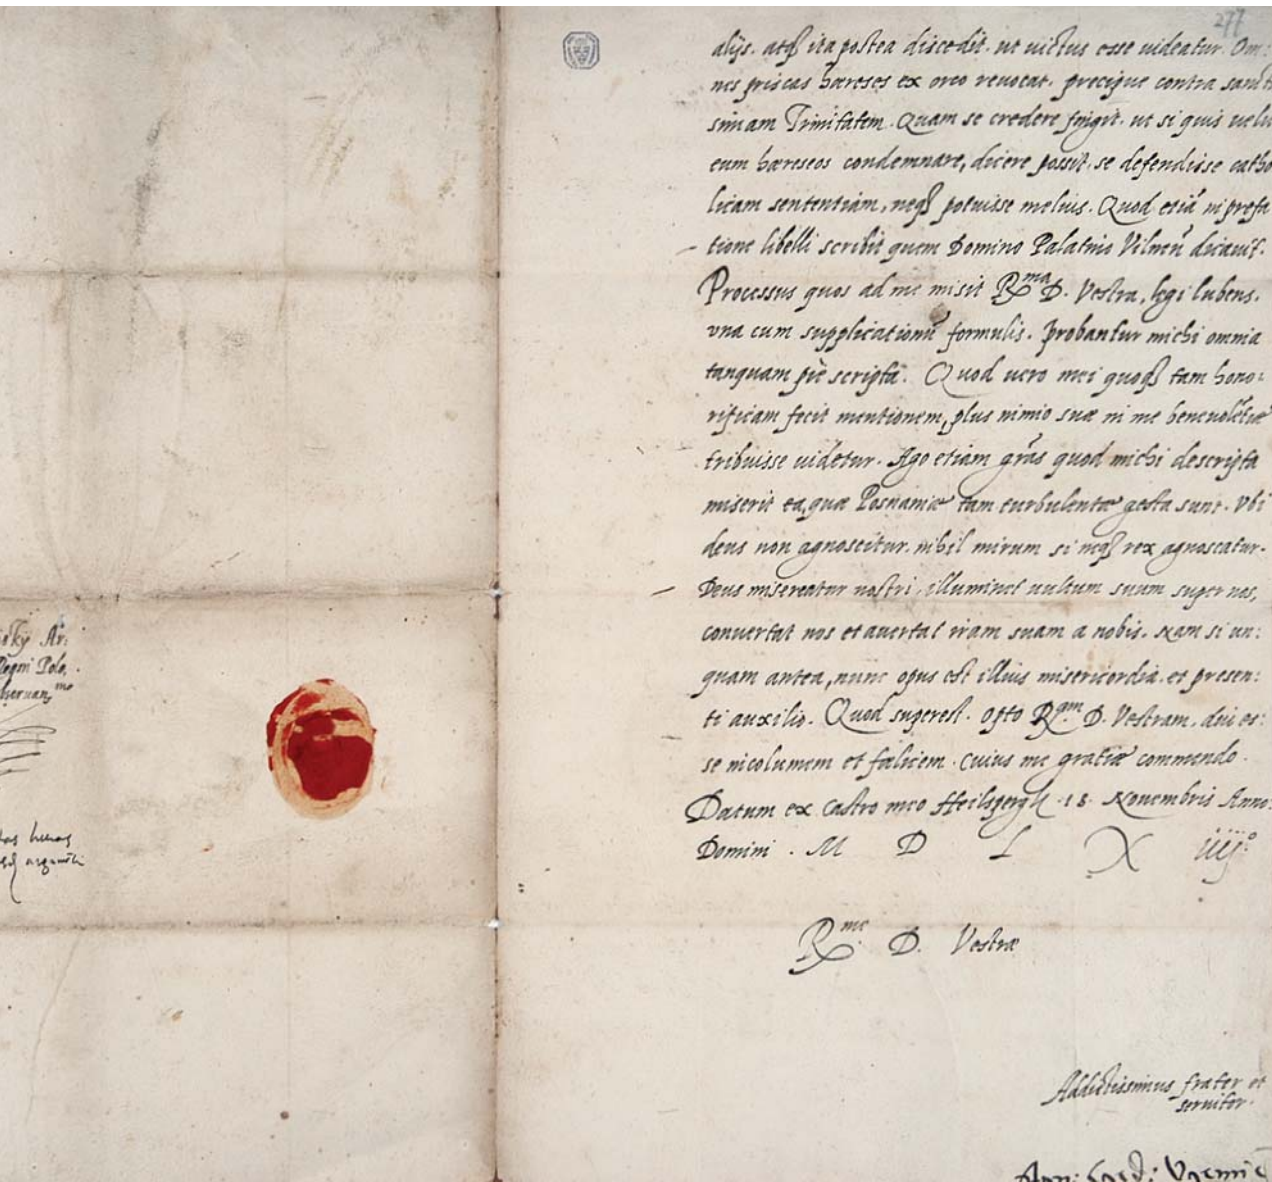 277
alijs. atq₃ ita postea discedit. ut uictus esse uideatur. Om:
nes priscas hæreses ex orco reuocat. precipue contra sanct
simam Trinitatem. Quam se credere fingit. ut si quis uelit
eum hæreseos condemnare, dicere possit, se defendisse catho
licam sententiam, neq₃ potuisse melius. Quod etiā in prefa
tione libelli scribit quem Domino Palatino Vilneñ dicauit.
Processus quos ad me misit R^ma D. Vestra, legi lubens,
vna cum supplicationū formulis. probantur michi omnia
tanquam piè scripta. Quod uero mei quoq₃ tam hono:
rificam fecit mentionem, plus nimio suæ in me beneuolētiæ
tribuisse uidetur. Ago etiam grās quod michi descripta
miserit ea, quæ Posnaniæ tam turbulentæ gesta sunt. Vbi
deus non agnoscitur. nihil mirum si neq₃ rex agnoscatur.
Deus misereatur nostri, illuminet uultum suum super nos,
conuertat nos et auertat iram suam a nobis. Nam si un:
quam antea, nunc opus est illius misericordia. et presen:
ti auxilio. Quod superest. opto R^am D. Vestram. diu es:
se incolumem et fœlicem. cuius me gratiæ commendo.
Datum ex Castro meo Heilspergk .18. Nouembris Anno:
Domini . M D L X iiij°
R^me D. Vestræ
Addictissimus frater et
seruitor.
sky Ar:
Regni Polo.
obseruan^mo